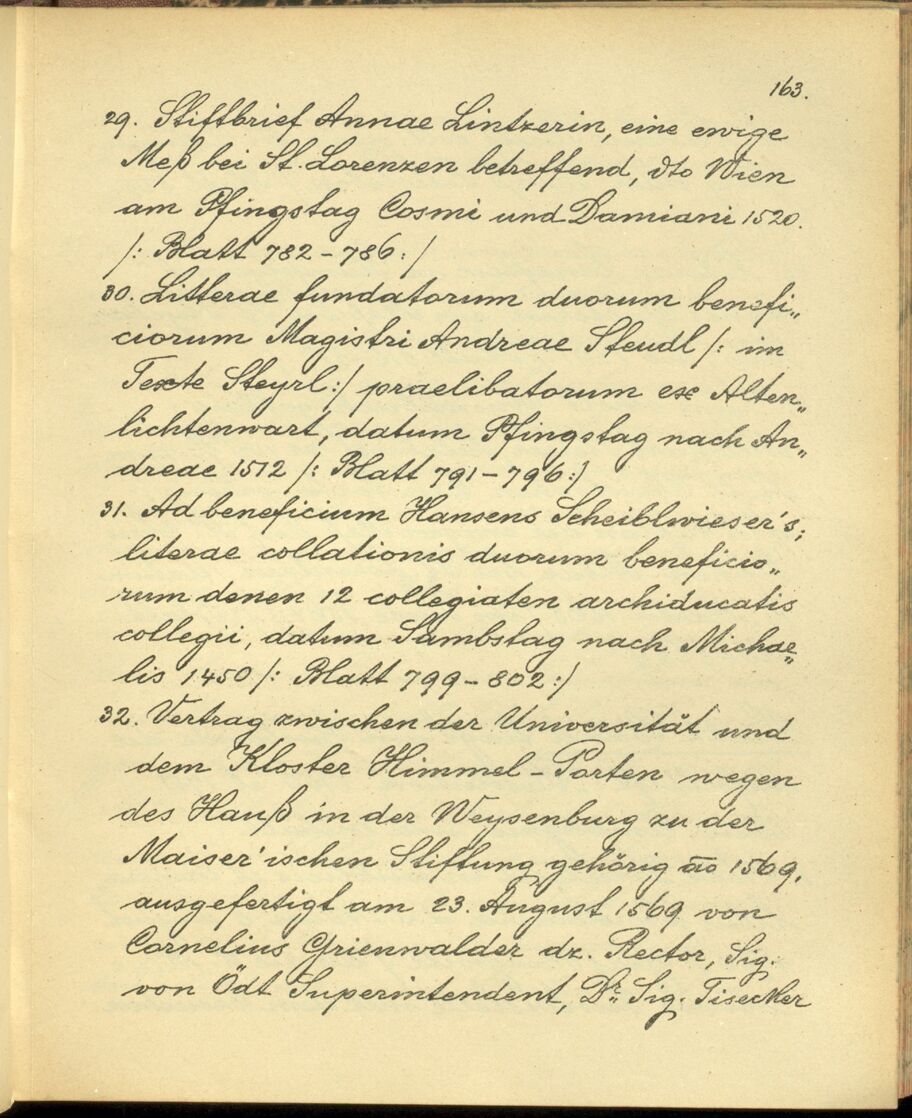 163.
29. Stiftbrief Annae Lintzerin, eine ewige
Meß bei St. Lorenzen betreffend, dto Wien
am Pfingstag Cosmi und Damiani 1520.
/: Blatt 782 - 786 :/
30. Litterae fundatorum duorum benefi„
ciorum Magistri Andreae Steudl /: im
Texte Steyrl :/ praelibatorum ex Alten„
lichtenwart, datum Pfingstag nach An„
dreae 1512 /: Blatt 791 - 796 :/
31. Ad beneficium Hansens Scheiblwieser's;
literae collationis duorum beneficio„
rum denen 12 collegiaten archiducatis
collegii, datum Sambstag nach Michae„
lis 1450 /: Blatt 799 - 802 :/
32. Vertrag zwischen der Universität und
dem Kloster Himmel - Porten wegen
des Hauß in der Weysenburg zu der
Maiser'ischen Stiftung gehörig ao 1569.
ausgefertigt am 23. August 1569 von
Cornelius Grienwalder dz. Rector, Sig.
von Ödt Superintendent, Dr. Sig. Tisecker